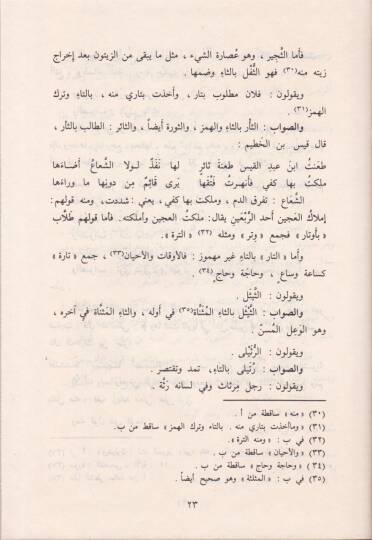 فأما الثَّجير ، وهو عُصارة الشيء ، مثل ما يبقى من الزيتون بعد إخراج
زيته منه(٣٠) فهو الثُّفْل بالثاء وضمها .
ويقولون : فلان مطلوب بتار ، وأخذت بتاري منه ، بالتاء وترك
الهمز(٣١) .
والصواب : الثأر بالثاء والهمز ، والثورة أيضاً ، والثائر : الطالب بالثأر ،
قال قيس بن الخَطيم :
طعنتُ ابن عبدِ القيس طعنةَ ثائرٍ لها نَفَذٌ لـولا الشَّعاعُ أضـاءَها
ملكتُ بها كفي فأنهـرتُ فَتْقَها يَرى قائمٌ مِن دونِها ما وراءَها
الشَّعاع : تفرق الدم ، وملكت بها كفي ، يعني : شددت ، ومنه قولهم :
إملاكُ العَجين أحد الرَّيْعَينِ يقال: ملكتُ العجين وأملكته. فأما قولهم طُلاّب
« بأوتار » فجمع « وِتر » ومثله (٣٢) « الترة » .
وأما « التار » بالتاء غير مهموز : فالأوقات والأحيان(٣٣) ، جمع « تارة »
كساعة وساع ، وحاجَة وحاج(٣٤) .
ويقولون : الثَّيْتَل .
والصواب : الثَّيْتَل بالثاء المُثَنَّاة(٣٥) في أوله ، والتاء المَثنَّاة في آخره ،
وهو الوَعِل المُسنّ :
ويقولون : الرُّتَيْلى .
والصواب : رُتَيلى بالتاء، تمد وتقتصر .
ويقولون : رجل مِرثاث وفي لسانه رُثَّة .
(٣٠) « منه » ساقطة من أ .
(٣١) « وماأخذت بتاري منه . بالتاء وترك الهمز » ساقط من ب.
(٣٢) في ب : « ومنه الترة ».
(٣٣) « والأحيان » ساقطة من ب .
(٣٤) « وحاجة وحاج » ساقطة من ب .
(٣٥) في ب : « المثلثة » وهو صحيح أيضاً .
٢٣